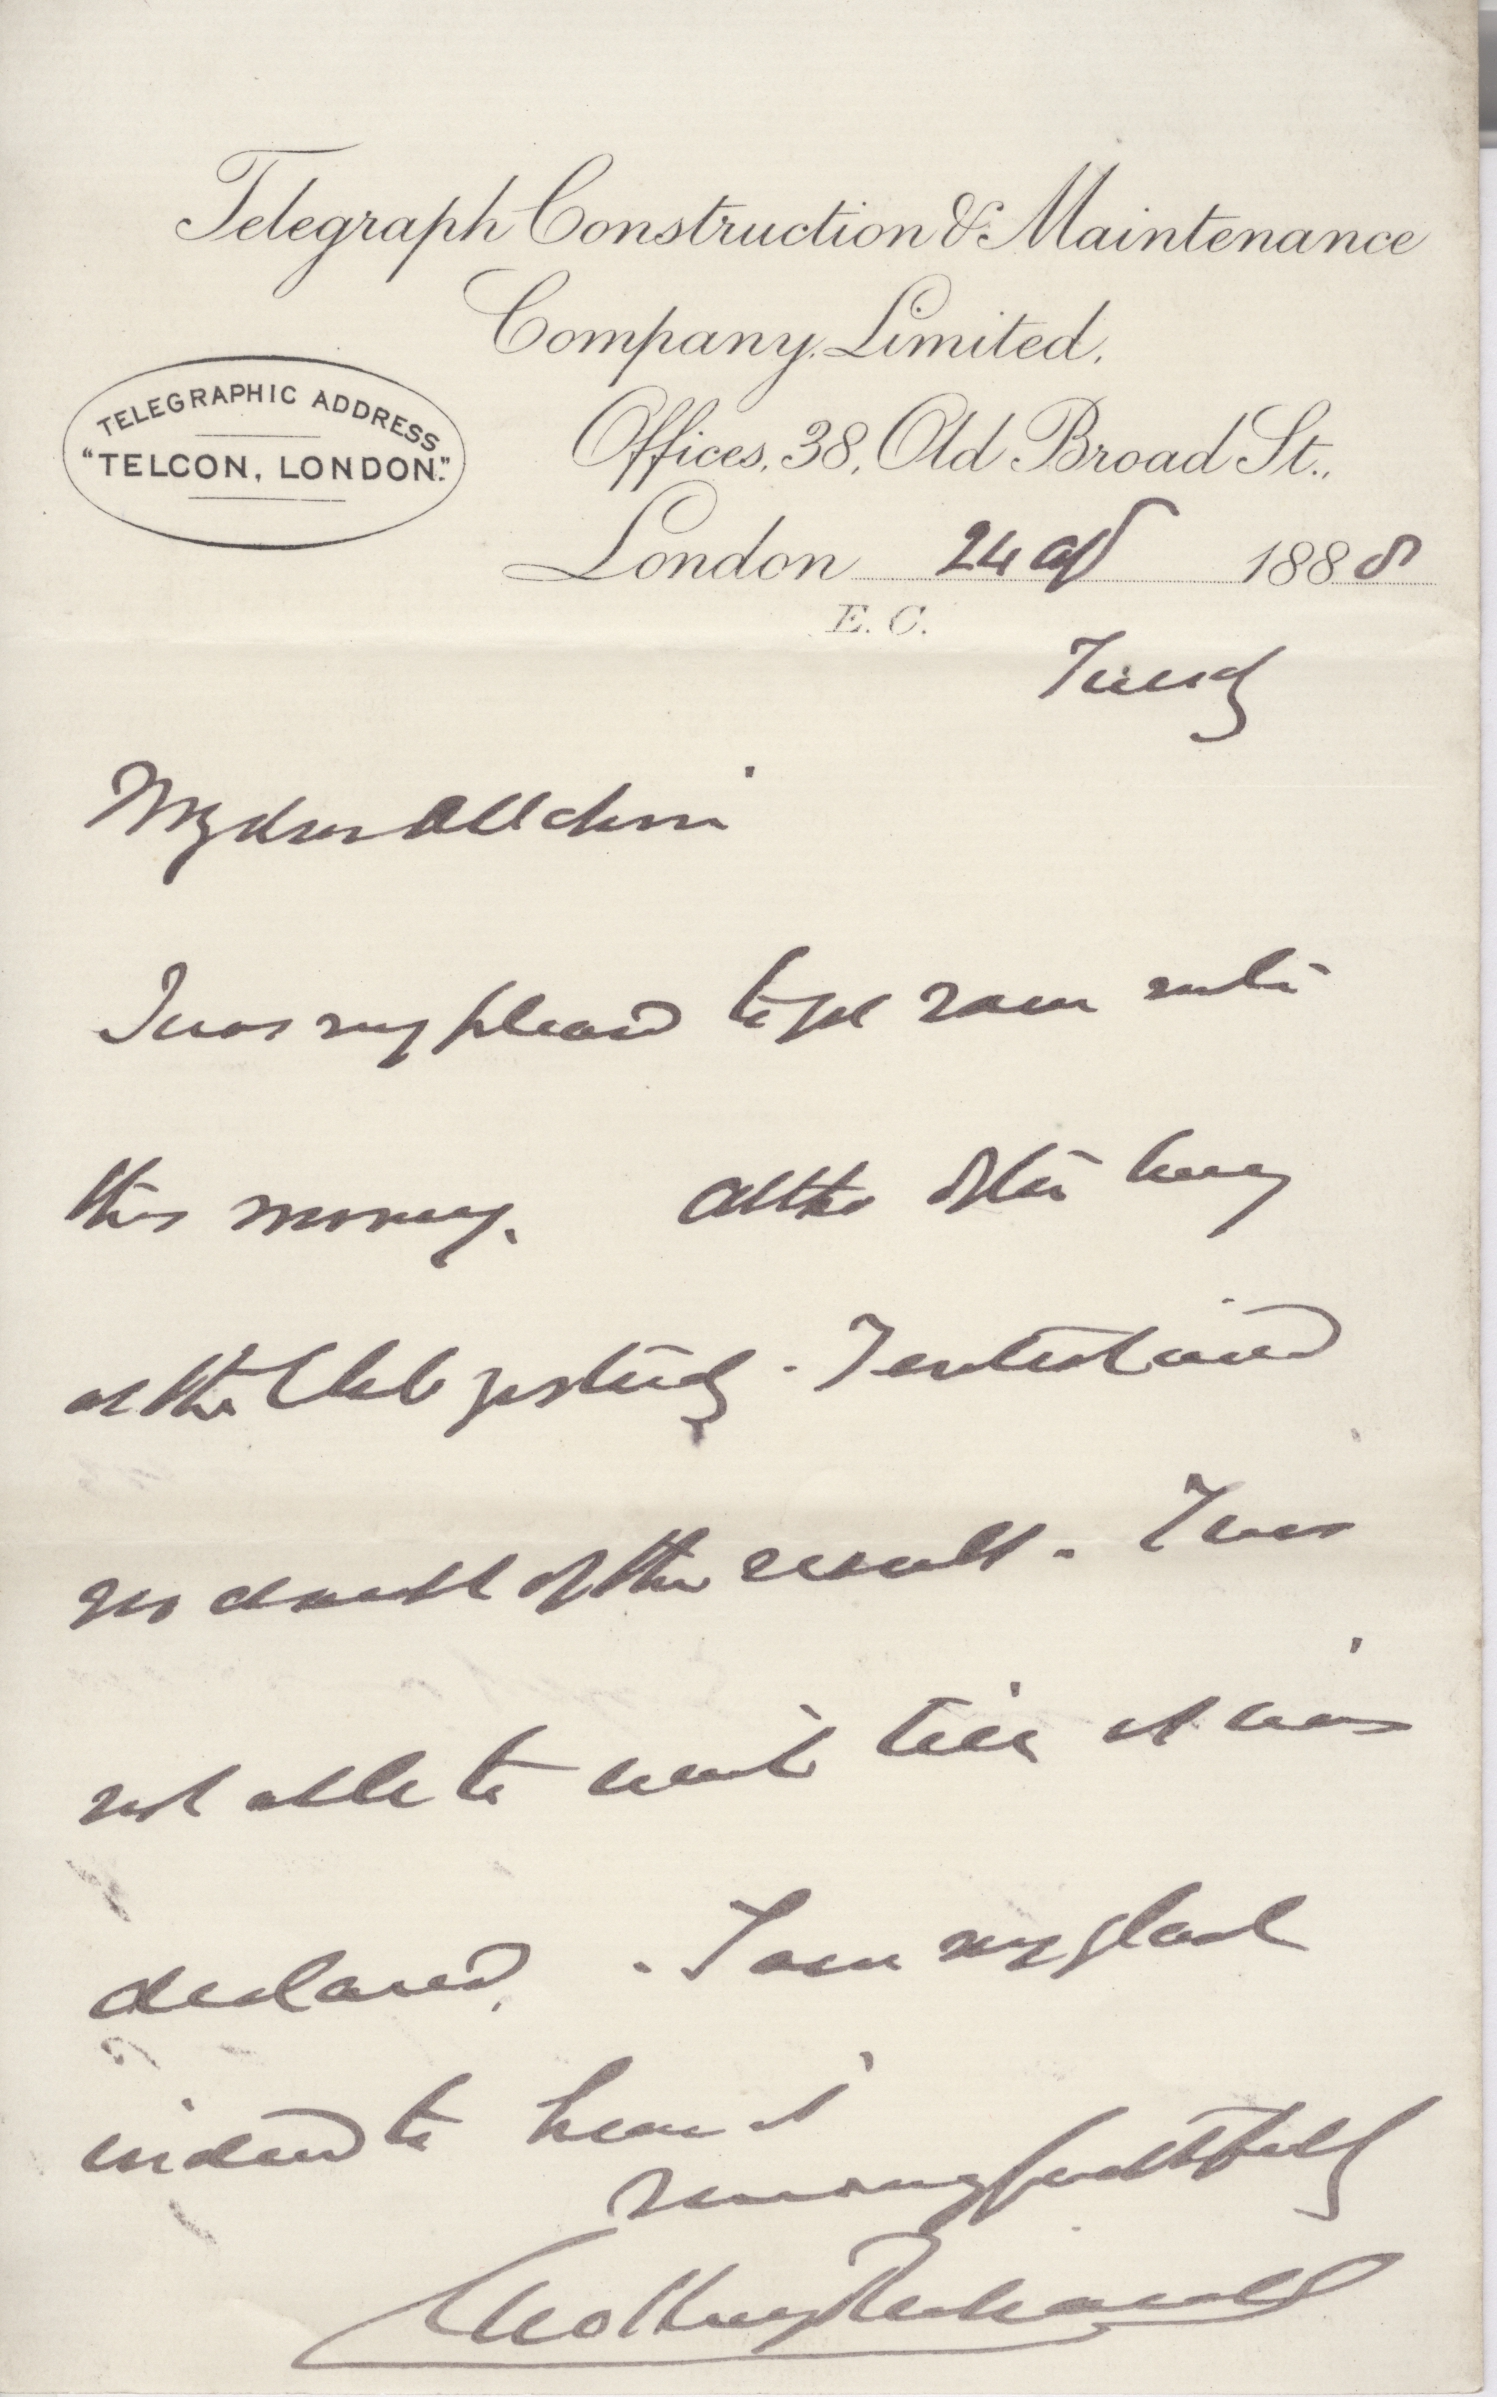 Telegraph Construction & Maintenance
Company, Limited,
TELEGRAPHIC ADDRESS
"TELCON, LONDON."
Offices, 38, Old Broad St.,
London 24 ap 1888
E. C.
Tuesdy
My dear Allchin
I was very pleasd to get your note
this morning. Altho
at the Club yesterdy. I entertained
no doubt of the result. I was
not able to wait till it was
declared. I am very glad
indeed to hear it
Yours very faithfully